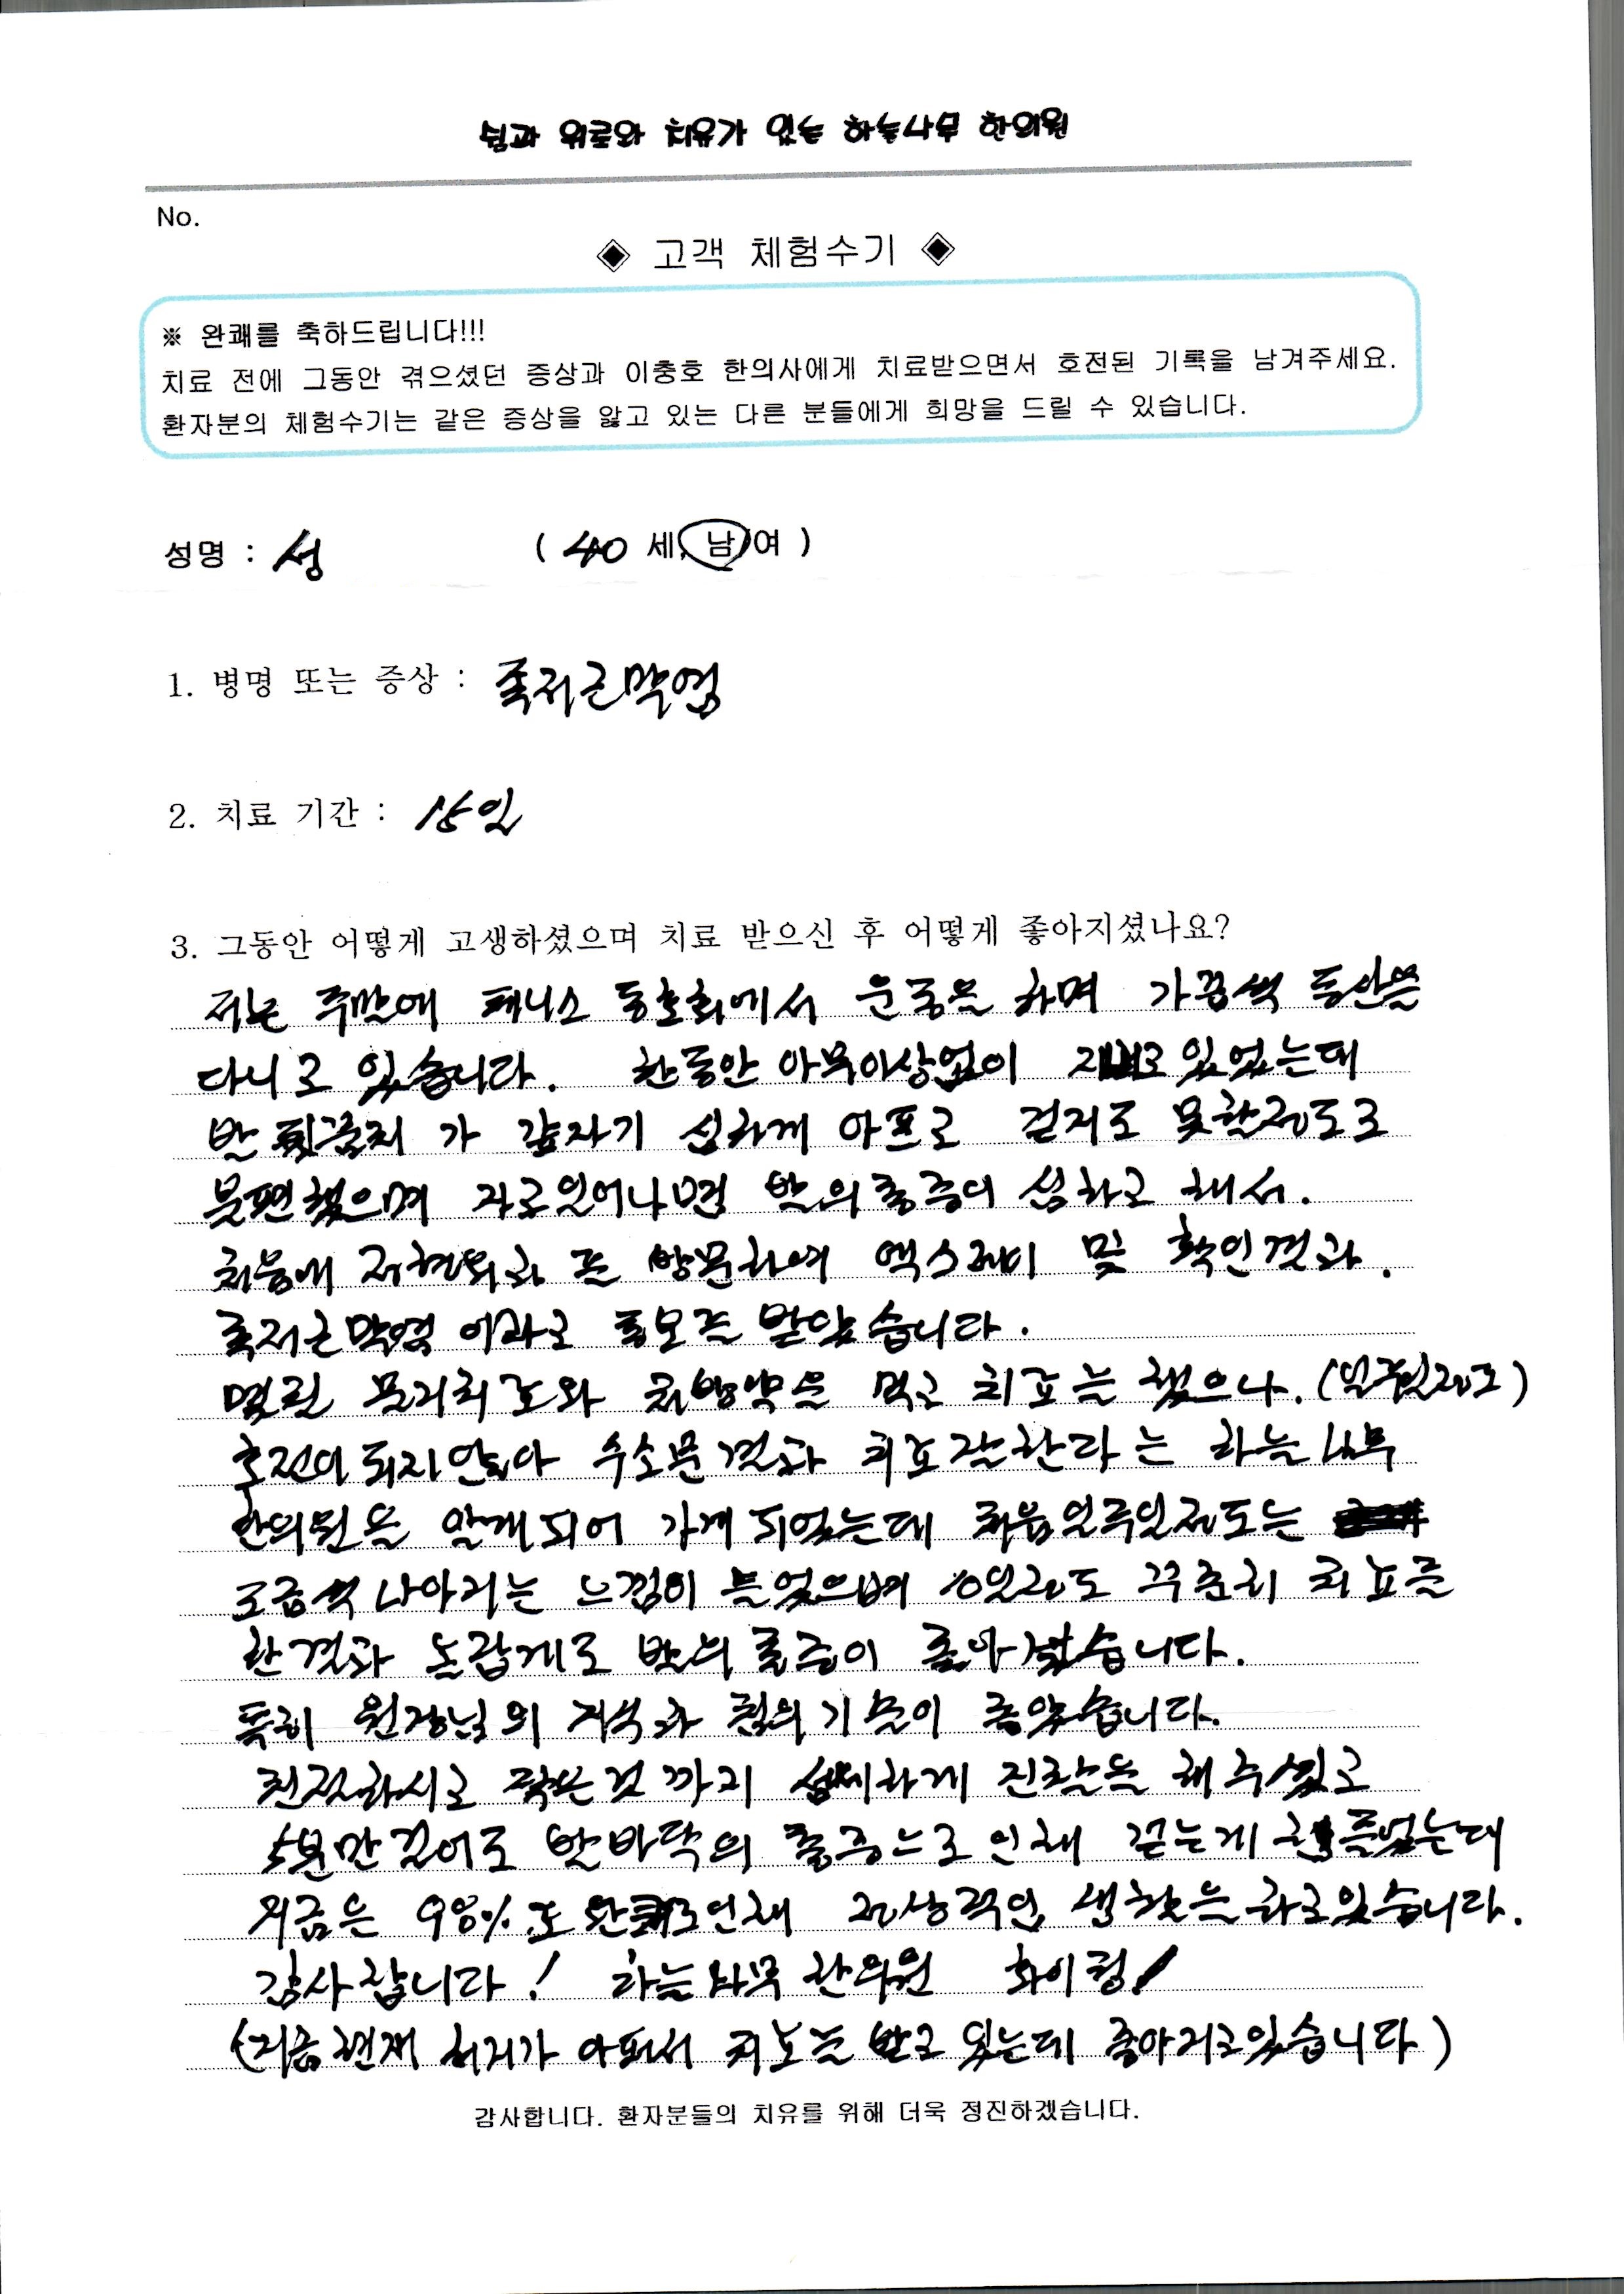 쉼과 위로와 치유가 있는 하늘나무 한의원
No.
◈ 고객 체험수기 ◈
※ 완쾌를 축하드립니다!!!
치료 전에 그동안 겪으셨던 증상과 이충호 한의사에게 치료받으면서 호전된 기록을 남겨주세요.
환자분의 체험수기는 같은 증상을 앓고 있는 다른 분들에게 희망을 드릴 수 있습니다.
성명 : 성 ( 40 세, 남/여 )
1. 병명 또는 증상 : 족저근막염
2. 치료 기간 : 15일
3. 그동안 어떻게 고생하셨으며 치료 받으신 후 어떻게 좋아지셨나요?
저는 주말에 테니스 동호회에서 운동을 하며 가끔씩 등산을
다니고 있습니다. 한동안 아무이상없이 지내고 있었는데
발 뒷꿈치가 갑자기 심하게 아프고 걷지도 못할정도로
불편했으며 자고일어나면 발의통증이 심하고 해서.
처음에 정형외과를 방문하여 엑스레이 및 확인결과.
족저근막염 이라고 통보를 받았습니다.
몇일 물리치료와 처방약을 먹고 치료를 했으나. (일주일정도)
호전이 되지않아 수소문결과 치료잘한다는 하늘나무
한의원을 알게되어 가게 되었는데 처음일주일정도는
조금씩 나아지는 느낌이 들었으며 10일정도 꾸준히 치료를
한결과 놀랍게도 발의 통증이 좋아졌습니다.
특히 원장님의 지식과 침의기술이 좋았습니다.
친절하시고 작은것까지 섬세하게 진찰을 해주셨고
5분만 걸어도 발바닥의 통증으로 인해 걷는게 힘들었는데
지금은 98%로 완쾌로인해 정상적인 생활을 하고있습니다.
감사합니다! 하늘나무 한의원 화이팅!
(지금현재 허리가 아파서 치료를 받고 있는데 좋아지고있습니다)
감사합니다. 환자분들의 치유를 위해 더욱 정진하겠습니다.